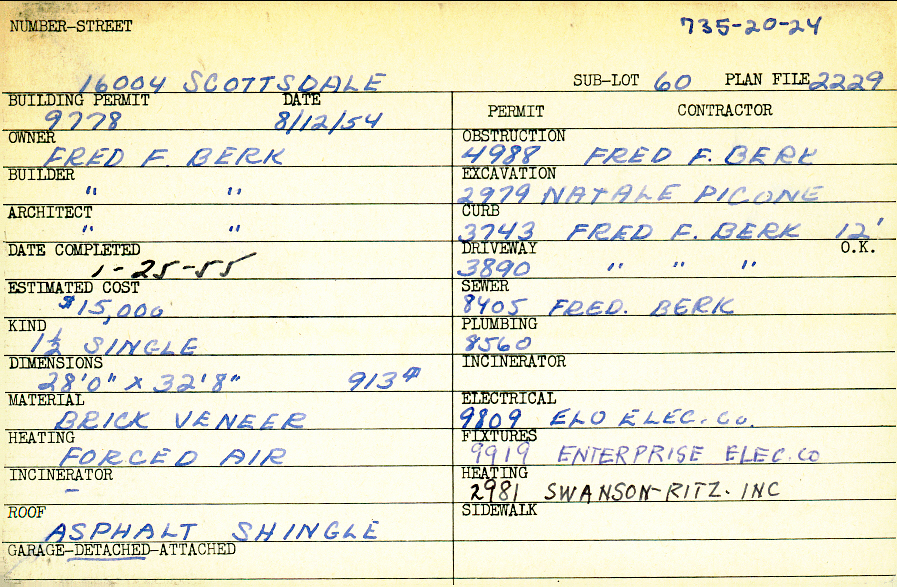 NUMBER-STREET 735-20-24
16004 SCOTTSDALE SUB-LOT 60 PLAN FILE 2229
BUILDING PERMIT DATE
9778 8/12/54
OWNER
FRED F. BERK
BUILDER
" "
ARCHITECT
" "
DATE COMPLETED
1-25-55
ESTIMATED COST
$15,000
KIND
1½ SINGLE
DIMENSIONS
28'0" X 32'8" 913#
MATERIAL
BRICK VENEER
HEATING
FORCED AIR
INCINERATOR
–
ROOF
ASPHALT SHINGLE
GARAGE-DETACHED-ATTACHED
PERMIT CONTRACTOR
OBSTRUCTION
4988 FRED F. BERK
EXCAVATION
2979 NATALE PICONE
CURB
3743 FRED F. BERK 12'
DRIVEWAY O.K.
3890 " " "
SEWER
8405 FRED. BERK
PLUMBING
8560
INCINERATOR
ELECTRICAL
9809 ELO ELEC. Co.
FIXTURES
9919 ENTERPRISE ELEC. CO
HEATING
2981 SWANSON-RITZ. INC
SIDEWALK